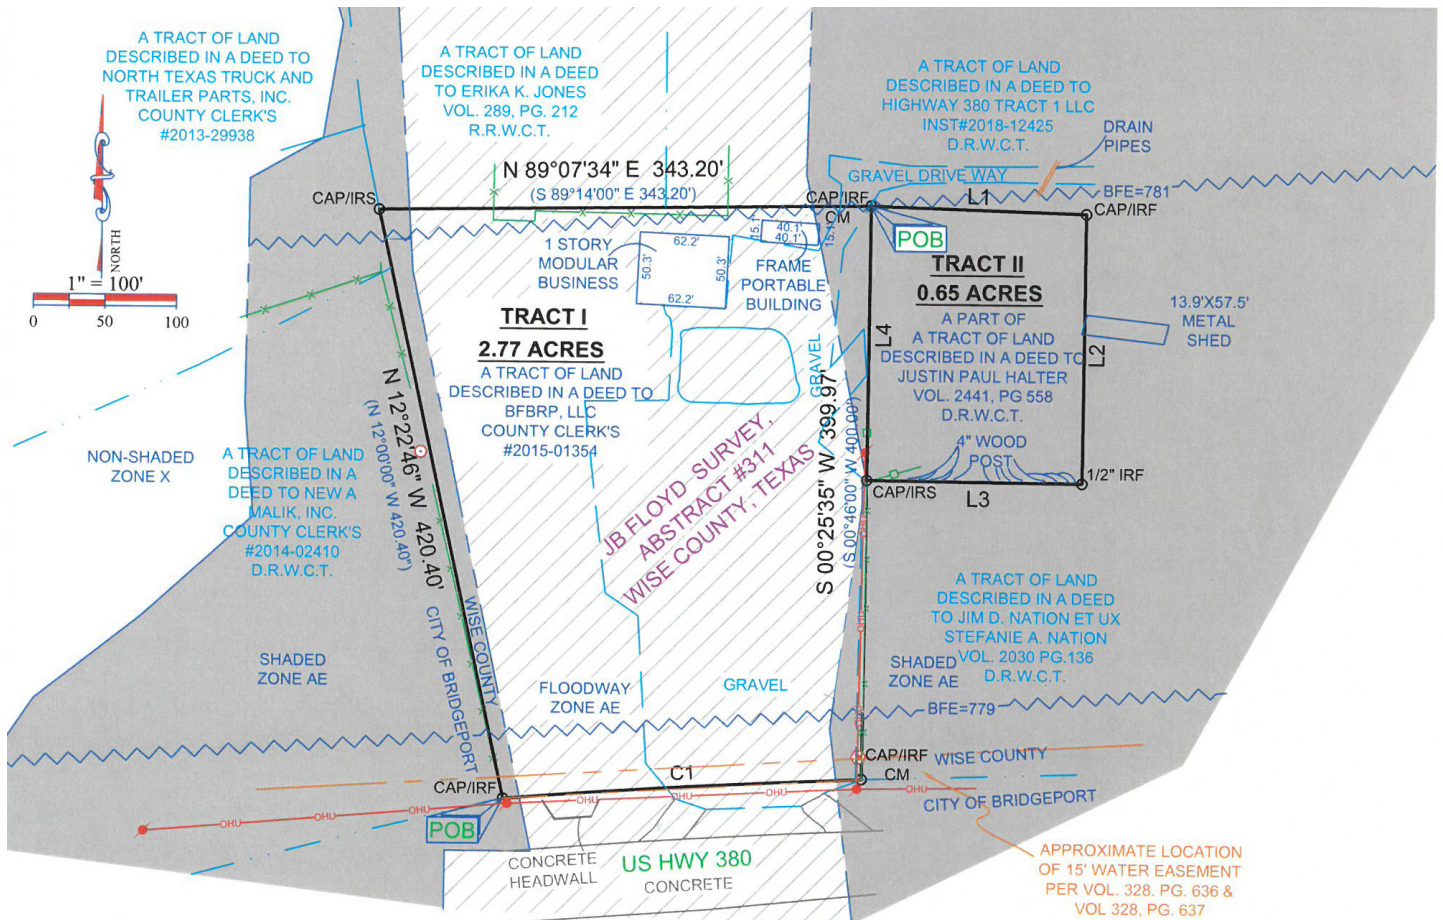 A TRACT OF LAND
DESCRIBED IN A DEED TO
NORTH TEXAS TRUCK AND
TRAILER PARTS, INC.
COUNTY CLERK'S
#2013-29938
A TRACT OF LAND
DESCRIBED IN A DEED
TO ERIKA K. JONES
VOL. 289, PG. 212
R.R.W.C.T.
A TRACT OF LAND
DESCRIBED IN A DEED TO
HIGHWAY 380 TRACT 1 LLC
INST#2018-12425
D.R.W.C.T.
DRAIN
PIPES
GRAVEL DRIVE WAY
BFE=781
N 89°07'34" E 343.20'
(S 89°14'00" E 343.20')
CAP/IRS
CAP/IRF
CM
L1
CAP/IRF
POB
NORTH
1" = 100'
0 50 100
1 STORY
MODULAR
BUSINESS
62.2'
50.3'
50.3'
62.2'
15.1'
40.1'
40.1'
15.1'
FRAME
PORTABLE
BUILDING
TRACT II
0.65 ACRES
A PART OF
A TRACT OF LAND
DESCRIBED IN A DEED TO
JUSTIN PAUL HALTER
VOL. 2441, PG 558
D.R.W.C.T.
4" WOOD
POST
L4
L2
L3
13.9'X57.5'
METAL
SHED
1/2" IRF
CAP/IRS
TRACT I
2.77 ACRES
A TRACT OF LAND
DESCRIBED IN A DEED TO
BFBRP, LLC
COUNTY CLERK'S
#2015-01354
GRAVEL
N 12°22'46" W 420.40'
(N 12°00'00" W 420.40")
S 00°25'35" W 399.97'
(S 00°46'00" W 400.00')
JB FLOYD SURVEY,
ABSTRACT #311
WISE COUNTY, TEXAS
NON-SHADED
ZONE X
A TRACT OF LAND
DESCRIBED IN A
DEED TO NEW A
MALIK, INC.
COUNTY CLERK'S
#2014-02410
D.R.W.C.T.
A TRACT OF LAND
DESCRIBED IN A DEED
TO JIM D. NATION ET UX
STEFANIE A. NATION
VOL. 2030 PG.136
D.R.W.C.T.
SHADED
ZONE AE
WISE COUNTY
CITY OF BRIDGEPORT
FLOODWAY
ZONE AE
GRAVEL
SHADED
ZONE AE
BFE=779
OHU
OHU
CAP/IRF
WISE COUNTY
CM
CITY OF BRIDGEPORT
CAP/IRF
C1
OHU
OHU
OHU
OHU
OHU
OHU
OHU
POB
CONCRETE
HEADWALL
US HWY 380
CONCRETE
APPROXIMATE LOCATION
OF 15' WATER EASEMENT
PER VOL. 328. PG. 636 &
VOL 328, PG. 637